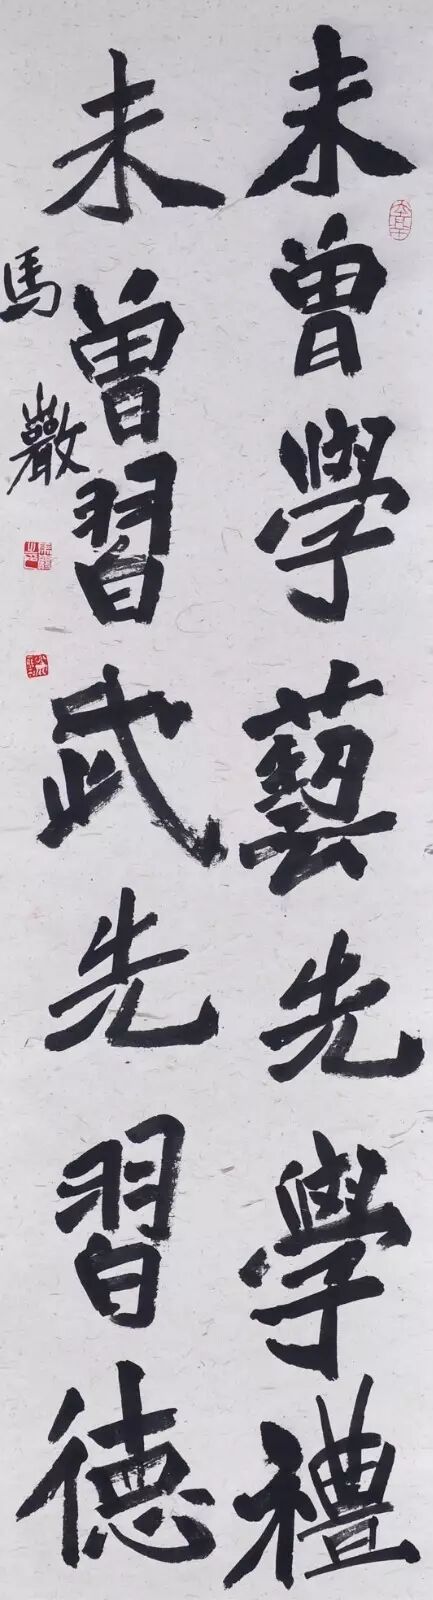 未曾學藝先學禮
未曾習武先習德
馬巖